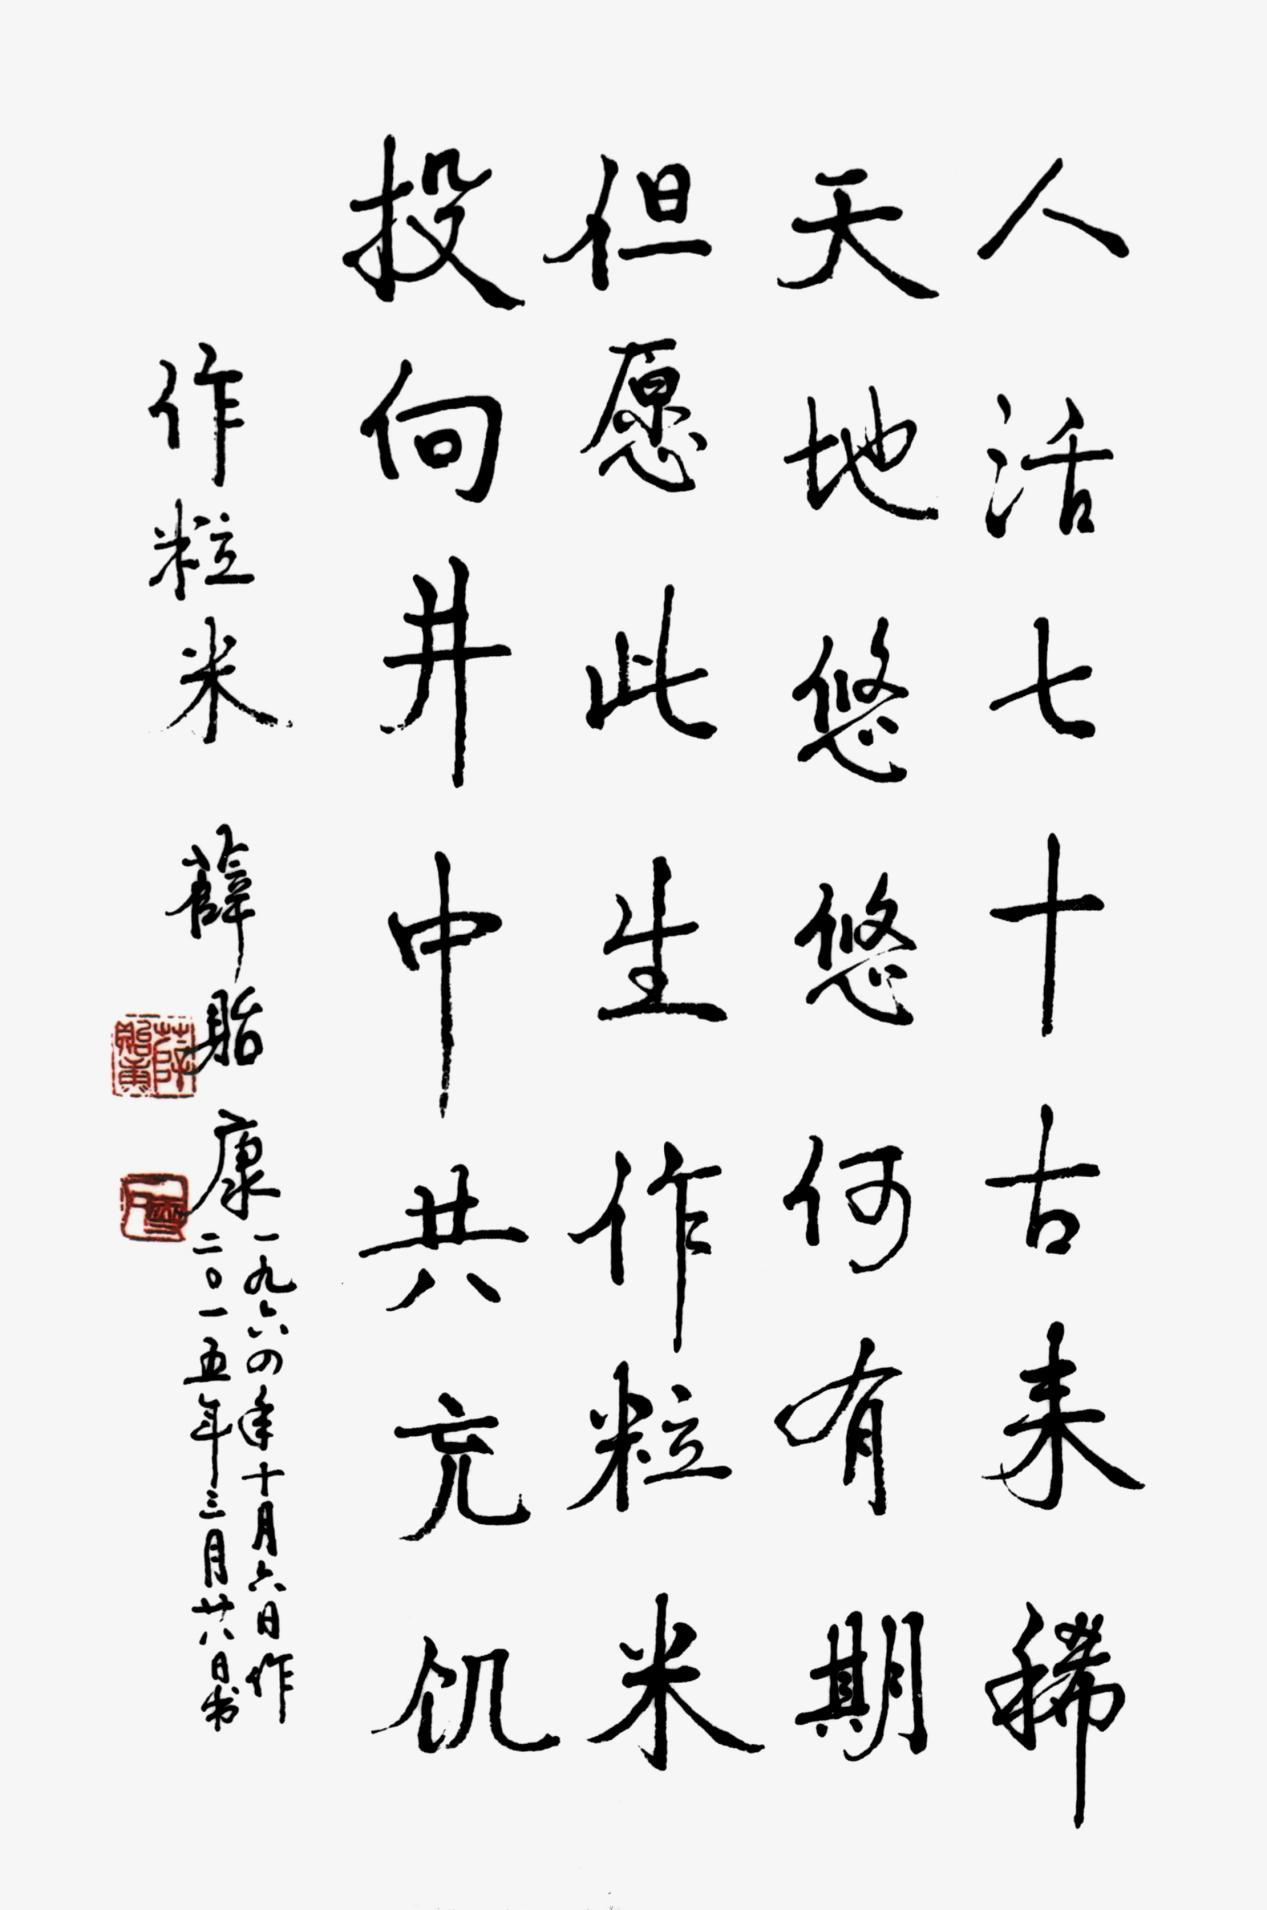 人活七十古来稀
天地悠悠何有期
但愿此生作粒米
投向井中共充饥
作粒米 薛贻康
一九六四年十月六日作
二〇一五年三月廿八日书
薛贻康